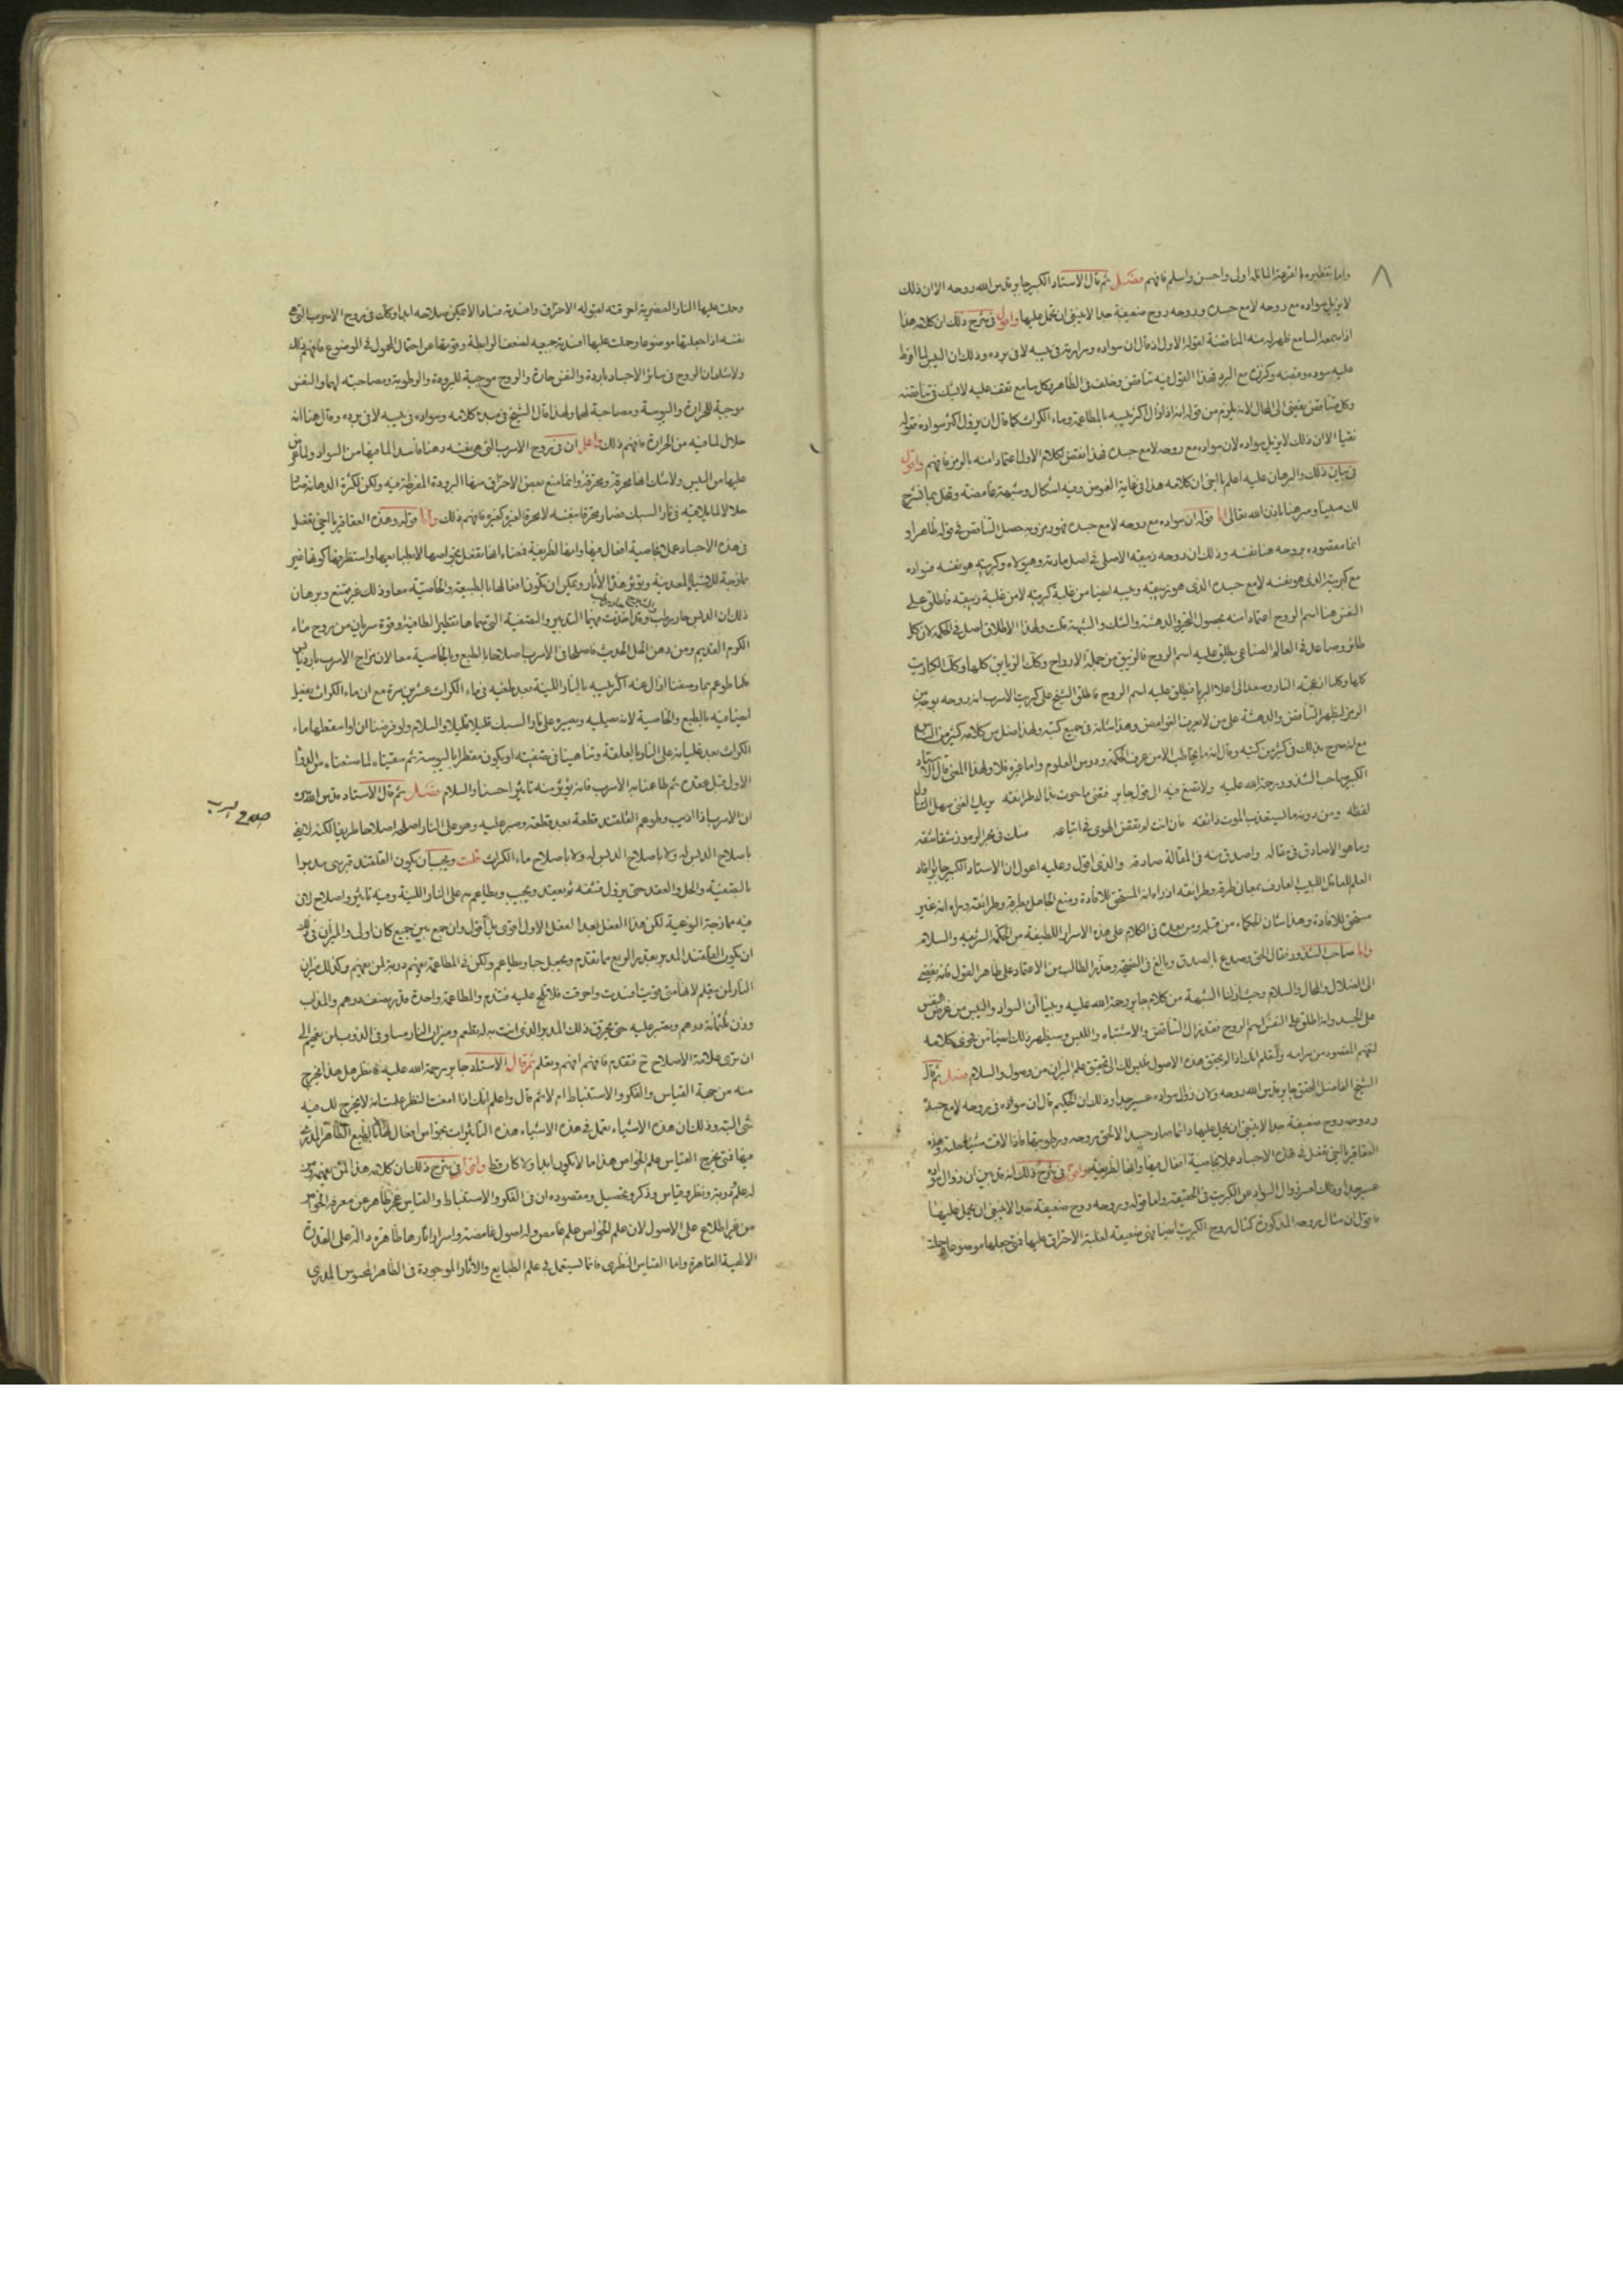 واما بتقطيره بالقرعة المائلة اولى واحسن واسلم فافهم فصل ثم قال الاستاد الكبير جابر قدس الله روحه الا ان ذلك
لا يزيل سواده مع روحه لا مع جسده وروحه روح ضعيفة جدا لا ينبغي ان يحمل عليها واقول في شرح ذلك ان كلامه هذا
اذا سمعه السامع ظهر له منه المناقضة لقوله الاول اذ قال ان سواده ومرارته في يبسه لا في برده وذلك ان اليبس لما افرط
عليه سوده مع البرد فهذا القول فيه تناقض وخلف في الظاهر وكل سامع تقف عليه لا يشك في تناقضه
وكل متناقض يفضي الى المحال لانه يلزم من قوله انه اذا زال اكثر يبسه بالمطاعمة وماء الكراث كما قال ان يزول اكثر سواده فقوله
الا ان ذلك لا يزيل سواده لان سواده مع روحه لا مع جسده فهذا نقض لكلام الاول اعتمادا منه بالرمز فافهم واقول
في بيان ذلك والبرهان عليه اعلم يا اخي ان كلامه هذا في غاية الغوص وفيه اشكال وشبهة غامضة
لك مبينا ومبرهنا باذن الله تعالى اما قوله ان سواده مع روحه لا مع جسده فهو رمز وبه حصل التناقض في قوله ظاهرا و
انما مقصوده بروحه هنا نفسه وذلك ان روحه زيبقه الاصلي في اصل مادته وهيولاه وكبريته هو نفسه فسواده
مع كبريته الذي هو نفسه لا مع جسده الذي هو زيبقه ويبسه ايضا من غلبة كبريته لا من غلبة زيبقه فاطلق على
النفس هنا اسم الروح اعتمادا منه بحصول التحير والدهشة والشك والشبهة قلت ولهذا الاطلاق اصل في الحكمة لان كل
طائر وصاعد في العالم الصناعي يطلق عليه اسم الروح فالزيبق من جملة الارواح وكذلك الزيابق كلها وكذلك الكباريت
كلها وكلما النار وصعد الى اعلا البرابي يطلق عليه اسم الروح فاطلق الشيخ على كبريت الاسرب انه روحه
الرمز ليظهر التناقض والدهشة على من لا يعرف الغوامض وهذا شانه في جميع كتبه ولهذا ضل من كلامه كثير من الناس
مع انه صرح بذلك في كثير من كتبه وقال انه ما يخاطب الا من عرف الحكمة ودرس العلوم واما غيره فلا ولهذا المعنى قال الاستاد
الكبير صاحب الشذور رحمة الله عليه ولا تصغ فيه الى قول جابر ففي ما حوت تلك طرائقه يريك لفتى سهل التناول
لفظه ومن دونه ماليس يعذب الموت ذائقه فان انت لم تنقض الهوى في اتباعه هلك في بحر الرموز شقاشقه
وما هو الا صادق في مقاله واصدق منه في المقالة صادقه والذي اقول وعليه اعول ان الاستاد الكبير جابر افاد
العلم للعاقل اللبيب العارف بمعاني طرقه وطرائقه اذ راه انه المستحق للافادة ومنع الجاهل بطرقه وطرائقه وراه انه غير
مستحق للافادة وهذا شان الحكماء من قبله ومن بعده في الكلام على هذه الاسرار اللطيفة من الحكمة الشريفة والسلام
واما صاحب الشذور فقال الحق وصدع بالصدق وبالغ في النصيحة وحذر الطالب من الاعتماد على ظاهر القول فانه يفضي
الى الضلال والمحال والسلام وحيث ازلنا الشبهة من كلام جابر رحمة الله عليه وبينا ان السواد واليبس من غرض النفس
على الجسد وانه اطلق على النفس اسم الروح فقد زال التناقض والاشتباه واللبس وسيظهر ذلك ايضا من فحوى كلامه
لتفهم المقصود من مرامه ولتعلم انك اذا لم تحقق هذه الاصول فليس لك الى تحقيق علم الميزان من وصول والسلام فصل ثم قال
الشيخ الفاضل المحقق جابر قدس الله روحه ولان زوال سواده عسير جدا وذلك ان الحكيم قال ان سواده في روحه لا مع جسده
وروحه روح ضعيفة جدا لا ينبغي ان يحمل عليها وانما صار جسد الا لحق بروحه ورطوبتها فاذا لاقت شيئا وهذه
العقاقير يا اخي تفعل في هذه الاجساد عملا بخاصية افعال فيها وانها لظريفة واقول في شرح ذلك انه قد بين ان زوال سواده
عسير جدا وذلك لعسر زوال السواد عن الكبريت في الحقيقة واما قوله وروحه روح ضعيفة جدا لا ينبغي ان يحمل عليها
فاقول ان مثال روحه المذكورة كمثال روح الكبريت ايضا فهي ضعيفة لغلبة الاحتراق عليها فمتى جعلها موضوعا وحملت
وحملت عليها النار العنصرية احرقته لقبوله الاحتراق وافسدته فسادا لا يمكن صلاحه ابدا وكذلك في روح الاسرب التي هي
نفسه اذا جعلتها موضوعا وحملت عليها افسدت جميعه لضعف الرابطة وقوتها عن احتمال المحمول في الموضوع فافهم ذلك
ولا شك ان الروح في سائر الاجساد باردة والنفس حارة والروح موجبة للبرودة والرطوبة ومصاحبة لهما والنفس
موجبة للحرارة واليبوسة ومصاحبة لهما ولهذا قال الشيخ في مبدء كلامه وسواده في يبسه لا في برده وقال هنا انه
حلال لما فيه من الحرارة فافهم ذلك واعلم ان في روح الاسرب التي هي نفسه دهناة فاسدة لما فيها من السواد ولما غرض
عليها من اليبس ولا شك انها محرقة ومحترقة وانما منع بعض الاحتراق منها البرودة المفرطة فيه ولكن لكثرة الدهانة صار
حلالا لما يلاقيه في نار السبك فصار محرقا بنفسه لا محرقا لغيره كغيره فافهم ذلك واما قوله وهذه العقاقير يا اخي تفعل
في هذه الاجساد عملا بخاصية افعال فيها وانها لظريفة فمعناه انها تفعل بخواصها لا بطبائعها واستظرفها كونها غير
ممازجة للاشياء المعدنية وتؤثر هذه الآثار ويمكن ان تكون افعالها بالطبيعة والخاصية معا وذلك غير ممتنع وبرهان
ذلك ان الدبس حار رطب وقد اخذت منهما التدبير والتصفية التي تمامها بتقطير الطافية وقوة سريان من روح ماء
الكرم القديم ومن دهن الخل الحديث فاصلحا في الاسرب اصلاحا بالطبع وبالخاصية معا لان مزاج الاسرب بارد يابس
فلما طوعم بما وصفنا ازال عنه اكثر يبسه بالنار اللينة بعد طفيه في ماء الكراث عشرين مرة مع ان ماء الكراث يفعل
ايضا فيه بالطبع والخاصية لانه يصليه ويصبره على نار السبك قليلا قليلا والسلام ولو فرضنا ان لو اسقطها ماء
الكراث بعد غليانه على النار بالعلقة وتناهينا في تصفيته او يكون مقطرا باليبوسة ثم سقيناه لما صنعناه من الدواء
الاول قبل عقده ثم طاعمنا به الاسرب فانه يؤثر منه تاثيرا حسنا والسلام فصل ثم قال الاستاد قدس الله روحه
ان الاسرب اذا اذيب وطوعم القلقند قطعة بعد قطعة وصبر عليه وهو على النار اصلحه اصلاحا طريفا لكنه لا يفي
باصلاح الدبس له ولا باصلاح الدبس له ولا باصلاح ماء الكراث قلت ويجب ان يكون القلقند قبرسي مدبرا
بالتصفية والحل والعقد حتى يزول نتنه ثم يعقد ويحبب ويطاعم به على النار اللينة وفيه تاثير واصلاح لان
فيه ممازجة النوعية لكن هذا الفعل بعد الفعل الاول اقوى بل اقول وان جمع بين جميع كان اولى والميزان في هذا
ان يكون القلقند المدبر بقدر الربع مما تقدم ويجعل حبا ويطاعم ولكن في المطاعمة يفهم دربة لمن يفهم وكذلك ميزان
النار لمن يعلم لانها متى قويت افسدت واحرقت فلا تلح عليه فتندم والمطاعمة واحدة قدر نصف درهم والمذاب
وزن ثلثمائة درهم ويصبر عليه حتى يحرق ذلك المدبر الذي انت به له تطعم وميزان النار مساو في الذوب لمن يفهم الى
ان ترى علامة الاصلاح فتقدم فافهم افهم وتعلم ثم قال الاستاد جابر رحمة الله عليه فانظر هل هذا يخرج
منه من جهة القياس والفكر والاستنباط ام لا ثم قال واعلم انك اذا امعنت النظر علمت انه لا يخرج لك فيه
شئ البتة وذلك ان هذه الاشياء تعمل في هذه الاشياء هذه التاثيرات بخواص افعال لها لا بالطبع الظاهر المدرك
فيها فمتى يخرج القياس علم الخواص هذا ما لا يكون ابدا ولا كان قط واقول في شرح ذلك ان كلامه هذا لمن يفهم
له علم ودربة ونظر وقياس وذكر وتحصيل ومقصوده ان في الفكر والاستنباط والقياس عجز ظاهر عن معرفة الخواص
من غير اطلاع على الاصول لان علم الخواص علم غامض وله اصول غامضة واسرار اثارها ظاهرة دالة على القدرة
الالهية القاهرة واما القياس النظري فانما يستعمل في علم الطبايع والآثار الموجودة في الظاهر المحسوس المدرك